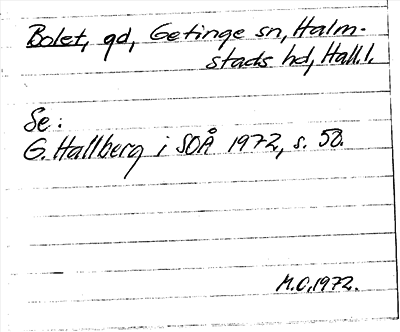 Bolet, gd, Getinge sn, Halm-
stads hd, Hall.l.
Se:
G. Hallberg i SOÅ 1972, s. 50.
M.O. 1972.